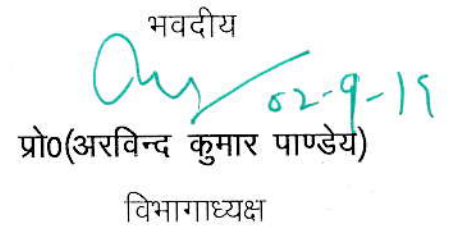 भवदीय
02-9-19
प्रो0(अरविन्द कुमार पाण्डेय)
विभागाध्यक्ष